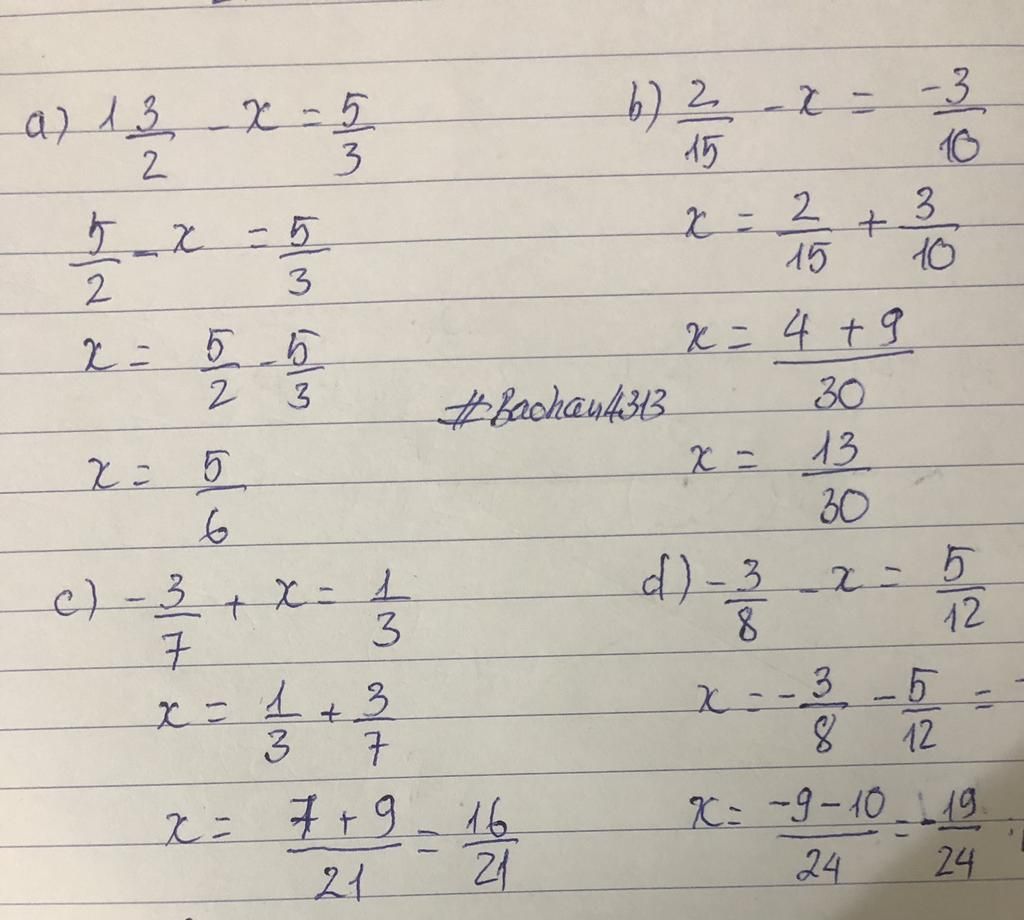 a) 1 3/2 - x = 5/3
5/2 - x = 5/3
x = 5/2 - 5/3
x = 5/6
b) 2/15 - x = -3/10
x = 2/15 + 3/10
x = (4 + 9)/30
x = 13/30
#Bachan4313
c) -3/7 + x = 1/3
x = 1/3 + 3/7
x = (7 + 9)/21 = 16/21
d) -3/8 - x = 5/12
x = -3/8 - 5/12 =
x = (-9 - 10)/24 = -19/24